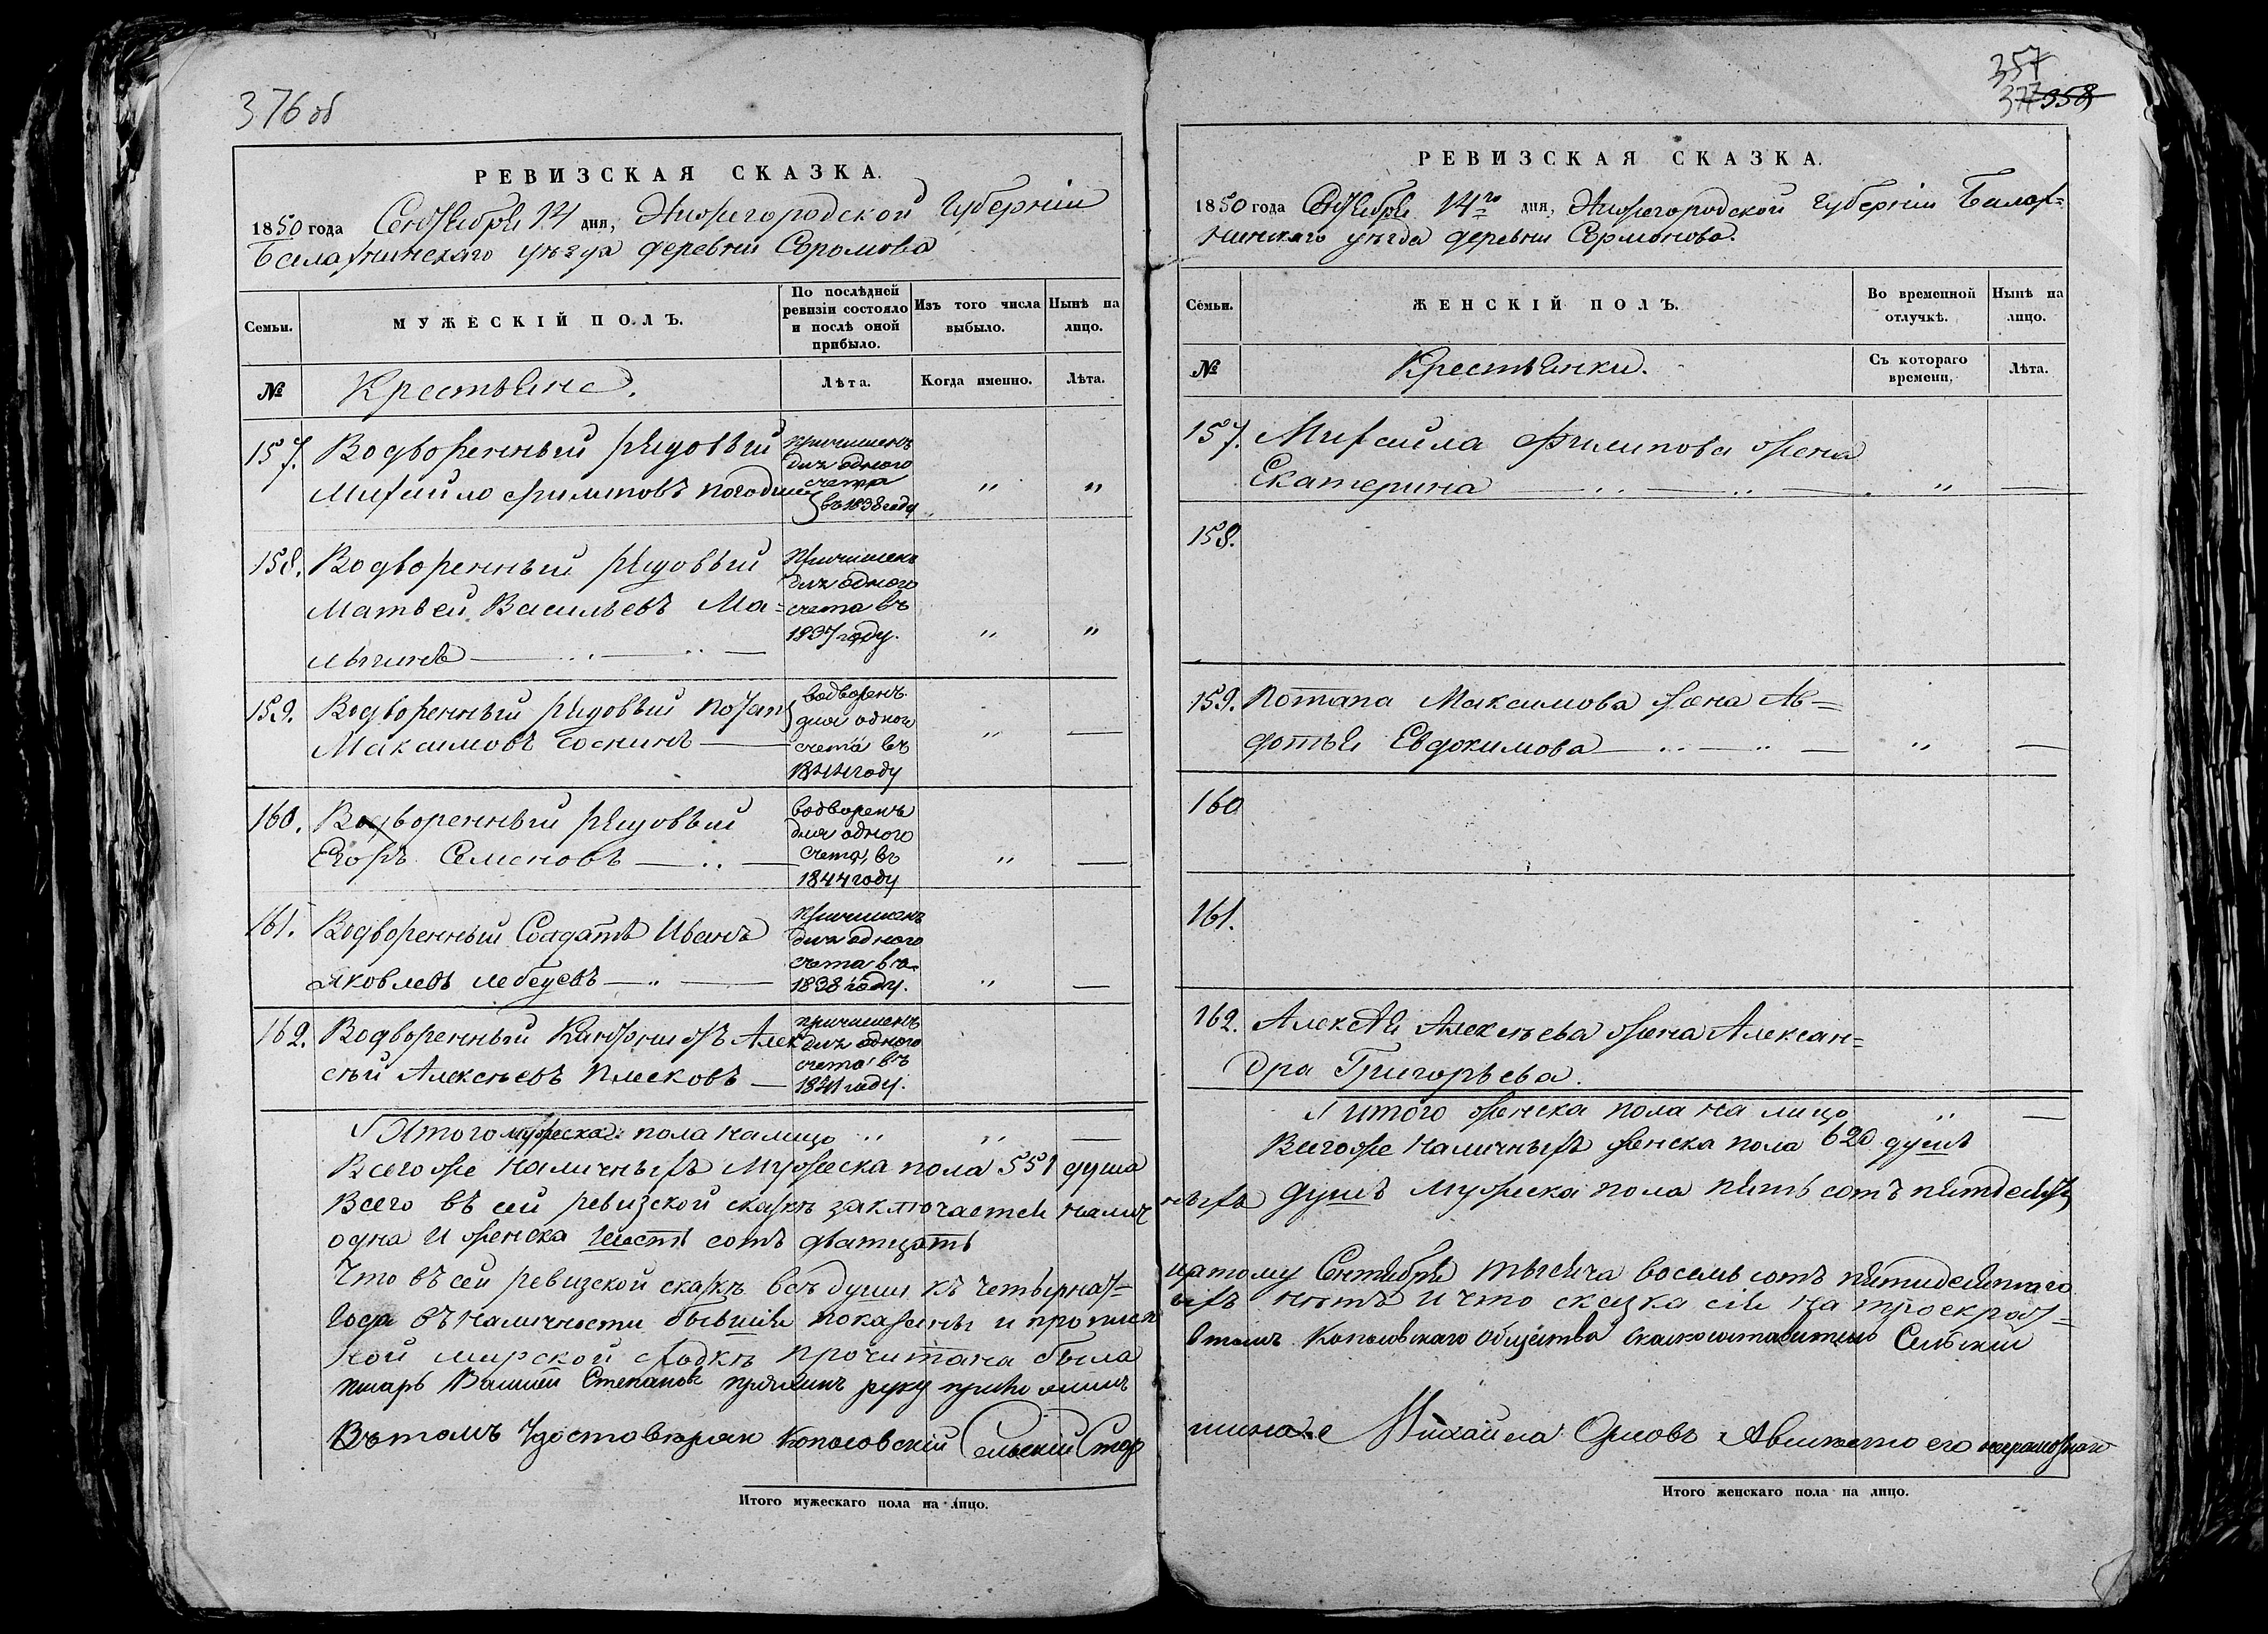 376 об
РЕВИЗСКАЯ СКАЗКА.
1850 года Сентября 14 дня, Нижегородской Губерніи
Балахнинскаго уѣзда деревни Сормова
Семьи.
МУЖЕСКІЙ ПОЛЪ.
По послѣдней ревизіи состояло и послѣ оной прибыло.
Изъ того числа выбыло.
Нынѣ на лицо.
№
Крестьяне.
Лѣта.
Когда именно.
Лѣта.
157. Водворенный рядовый
Михайло Филиповъ Погодин
причисленъ
для одного
счета
во 1838 году
" "
158. Водворенный рядовый
Матвей Васильевъ Ма=
лыгинъ
Причислен
для одного
счета въ
1837 году.
" "
159. Водворенный рядовый Потап
Максимовъ Соснинъ
водворенъ
для одного
счета въ
1844 году
"
160. Водворенный рядовый
Егоръ Семеновъ
водворенъ
для одного
счета, въ
1844 году
"
161. Водворенный Солдатъ Иванъ
Яковлевъ Лебедевъ
Причисленъ
для одного
счета въ
1838 году.
"
162. Водворенный Канониръ Алек
сѣй Алексѣевъ Плековъ
причисленъ
для одного
счета въ
1841 году.
Итого мужеска пола на лицо " "
Всего же наличныхъ мужеска пола 551 душа
Всего въ сей ревизской скаскѣ заключается налич
одна и женска шесть сотъ дватцать
Что въ сей ревизской скаскѣ всѣ души къ четырнат=
года въ наличности бывшія показаны и прописн
ной мирской сходкѣ прочитана была
писарь Василий Степановъ руку приложилъ
Въ томъ удостоверяю Копосовский Сельский Стар
Итого мужескаго пола на лицо.
357
377 358
РЕВИЗСКАЯ СКАЗКА.
1850 года Сентября 14го дня, Нижегородской Губерніи Балах=
нинскаго уѣзда деревни Сормонова.
Семьи.
ЖЕНСКІЙ ПОЛЪ.
Во временной отлучкѣ.
Нынѣ на лицо.
№
Крестьянки.
Съ котораго времени.
Лѣта.
157. Михаила Филипова жена
Екатерина "
158.
159. Потапа Максимова жена Ав=
дотья Евдокимова "
160
161.
162. Алексея Алексѣева жена Алексан=
дра Григорьева.
Итого женска пола на лицо "
Всего же наличныхъ женска пола 620 душъ
ныхъ душъ мужеска пола пять сотъ пятдесятъ
цатому Сентября тысяча восемь сотъ пятидесятаго
ыхъ нѣтъ и что сказка сія на троекрат=
в томъ Копосовскаго общества скаскосоставитель Сельский
шина Михайла Орловъ а вместо его неграмотнаго
Итого женскаго пола на лицо.